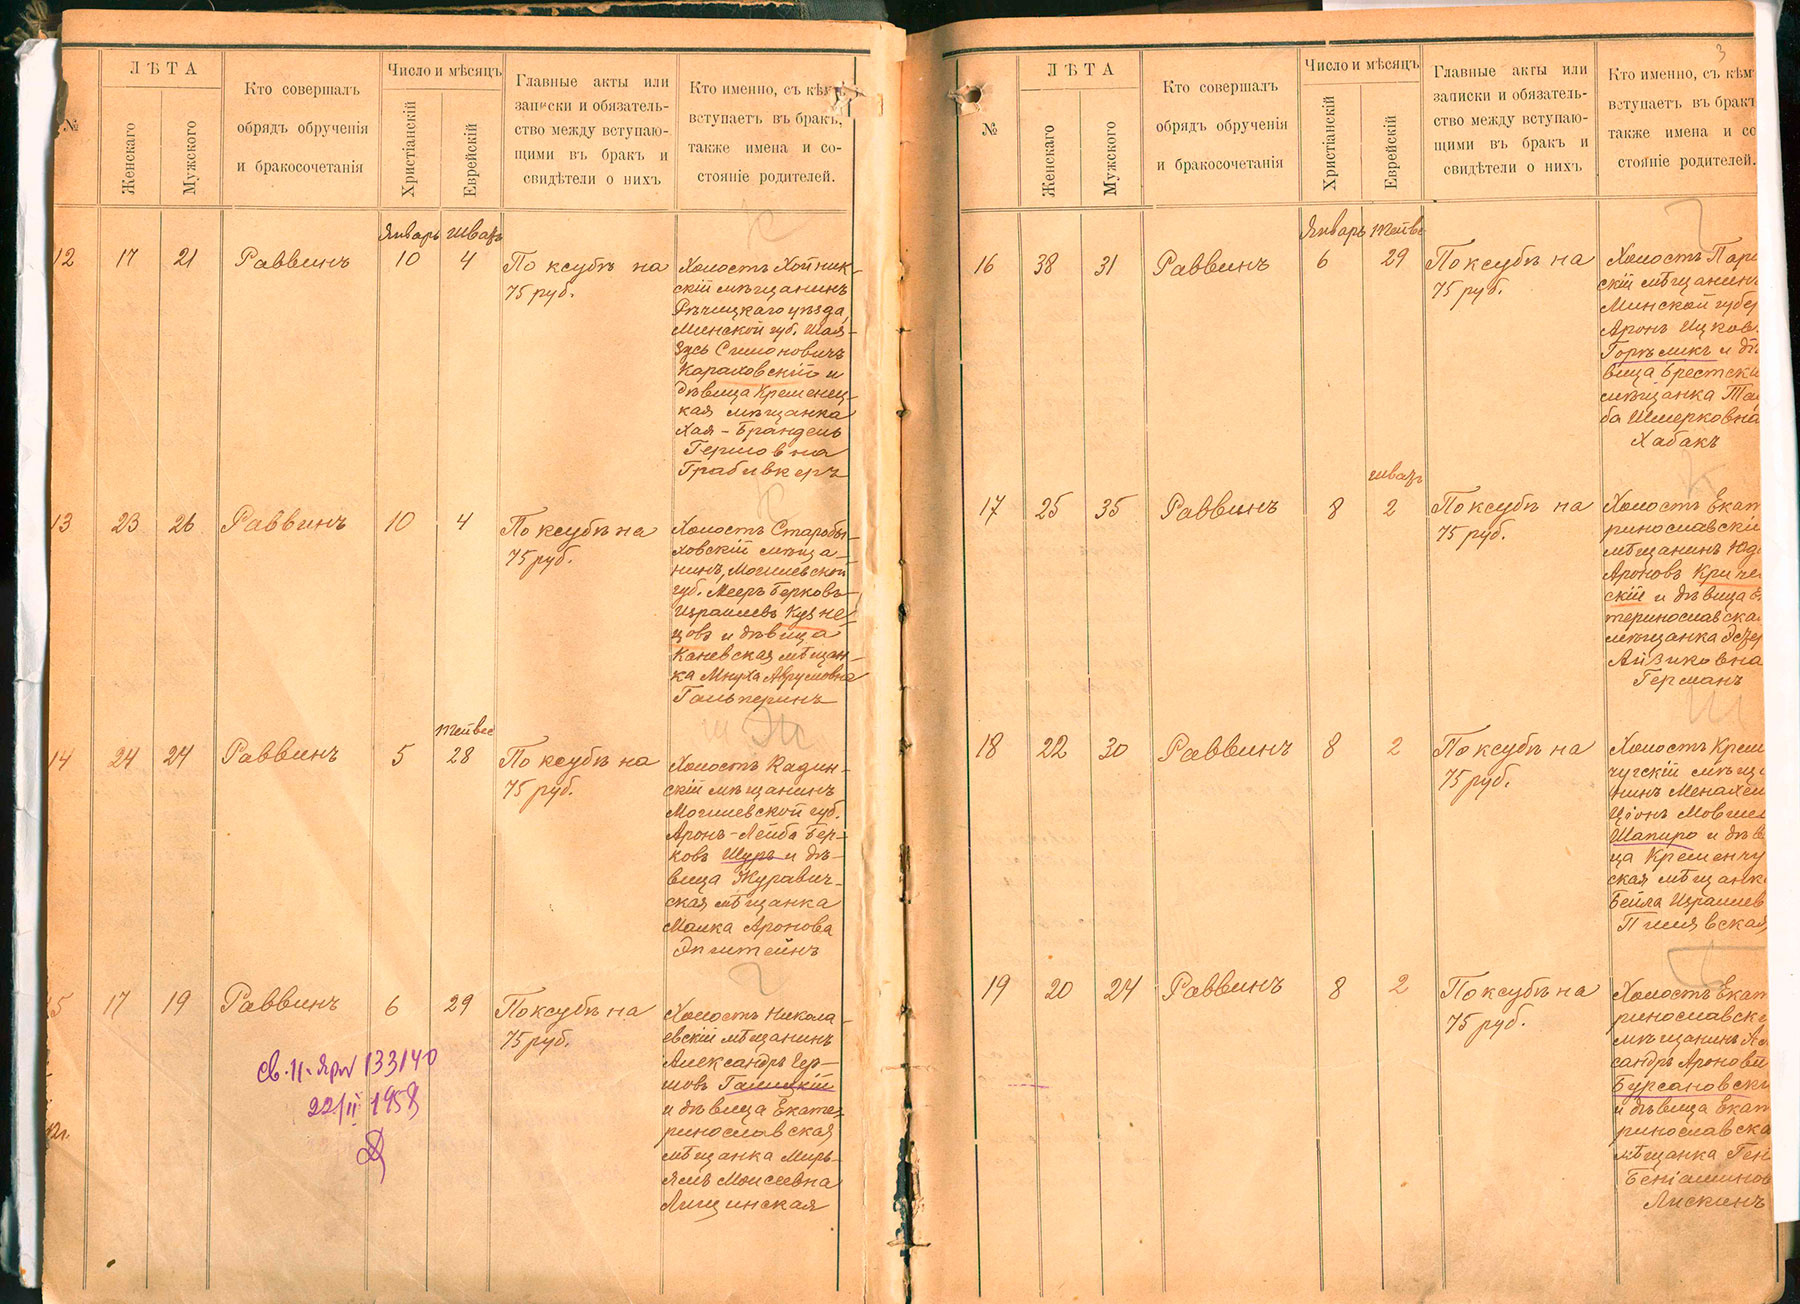 №
ЛѢТА
Женскаго
Мужского
Кто совершалъ
обрядъ обрученія
и бракосочетанія
Число и мѣсяцъ
Христіанскій
Еврейскій
Главные акты или
записки и обязатель-
ство между вступаю-
щими въ бракъ и
свидѣтели о нихъ
Кто именно, съ кѣмъ
вступаетъ въ бракъ,
также имена и со-
стояніе родителей.
Январь Шватъ
12 17 21 Раввинъ 10 4
По ксубѣ на
75 руб.
Холостъ Хойник-
скій мѣщанинъ
Рѣчицкаго уѣзда,
Минской губ. Шая-
Зусь Симоновичъ
Караховскій и
дѣвица Кременец-
кая мѣщанка
Хая-Брандель
Гершовна
Грабивкеръ
13 23 26 Раввинъ 10 4
По ксубѣ на
75 руб.
Холостъ Старобы-
ховскій мѣща-
нинъ, Могилевской
губ. Мееръ Берковъ-
Израилевъ Кузне-
цовъ и дѣвица
Каневская мѣщан-
ка Мнуха Аврумовна
Гальперинъ
Тейвес
14 24 24 Раввинъ 5 28
По ксубѣ на
75 руб.
Холостъ Кадин-
скій мѣщанинъ
Могилевской губ.
Аронъ-Лейба Бер-
ковъ Шуръ и дѣ-
вица Журавич-
ская мѣщанка
Малка Аронова
Эпштейнъ
15 17 19 Раввинъ 6 29
По ксубѣ на
75 руб.
Холостъ Никола-
евскій мѣщанинъ
Александръ Гер-
шовъ Галицкій
и дѣвица Екате-
ринославская
мѣщанка Мирь-
ямъ Моисеевна
Лищинская
133140
22/II 1958
3
№
ЛѢТА
Женскаго
Мужского
Кто совершалъ
обрядъ обрученія
и бракосочетанія
Число и мѣсяцъ
Христіанскій
Еврейскій
Главные акты или
записки и обязатель-
ство между вступаю-
щими въ бракъ и
свидѣтели о нихъ
Кто именно, съ кѣм
вступаетъ въ бракъ
также имена и со
стояніе родителей.
Январь Тейвес
16 38 31 Раввинъ 6 29
По ксубѣ на
75 руб.
Холостъ Пари
скій мѣщанин
Минской губер
Аронъ Ицков
Горѣликъ и дѣ
вица Брестска
мѣщанка Та
ба Шмерковна
Хабакъ
Шватъ
17 25 35 Раввинъ 8 2
По ксубѣ на
75 руб.
Холостъ Екат
ринославскі
мѣщанинъ Юд
Ароновъ Криче
скій и дѣвица Е
теринославска
мѣщанка Эсѳер
Айзиковна
Германъ
18 22 30 Раввинъ 8 2
По ксубѣ на
75 руб.
Холостъ Крем
чугскій мѣща
нинъ Менахем
Ціонъ Мовшев
Шапиро и дѣв
ца Кременчу
ская мѣщанк
Бейла Израилев
Пилявская
19 20 24 Раввинъ 8 2
По ксубѣ на
75 руб.
Холостъ Екат
ринославск
мѣщанинъ Ал
сандръ Аронови
Бурсановск
и дѣвица Екат
ринославска
мѣщанка Ген
Беніаминов
Лискинъ